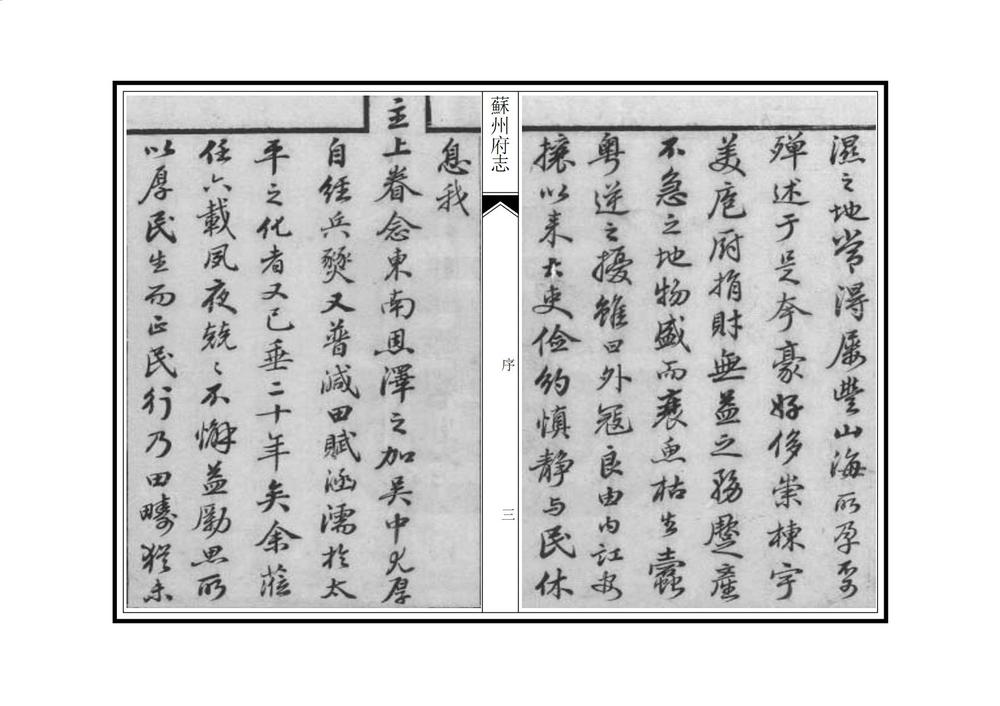 濕之地常得屢豐山海所孕不可
殫述于是夸豪好侈崇棟宇
美庖廚捐財無益之務蹙產
不急之地物盛而衰魚枯生蠹
粵逆之擾雖曰外寇良由內訌安
攘以來大吏儉約慎靜与民休
蘇州府志
序
三
息我
主上眷念東南恩澤之加吳中尤厚
自經兵燹又普減田賦涵濡於太
平之化者又已垂二十年矣余蒞
任六載夙夜兢兢不懈益勵思所
以厚民生而正民行乃田疇猶未